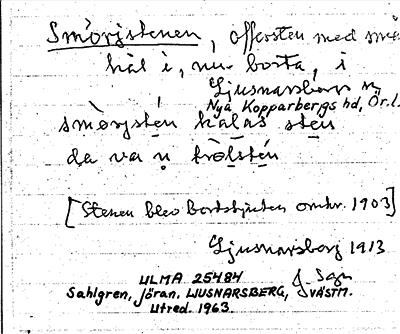 Smörjstenen, offersten med små
hål i, nu borta, i
Ljusnarsbergs sn,
Nya Kopparbergs hd, Ör.l.
smörjstén kalas stén
da va n trolstén
[Stenen blev bortskjuten omkr. 1903]
Ljusnarsberg 1913
ULMA 25484 J. Sgn
Sahlgren, Jöran. LJUSNARSBERG, VÄSTM.
Utred. 1963.